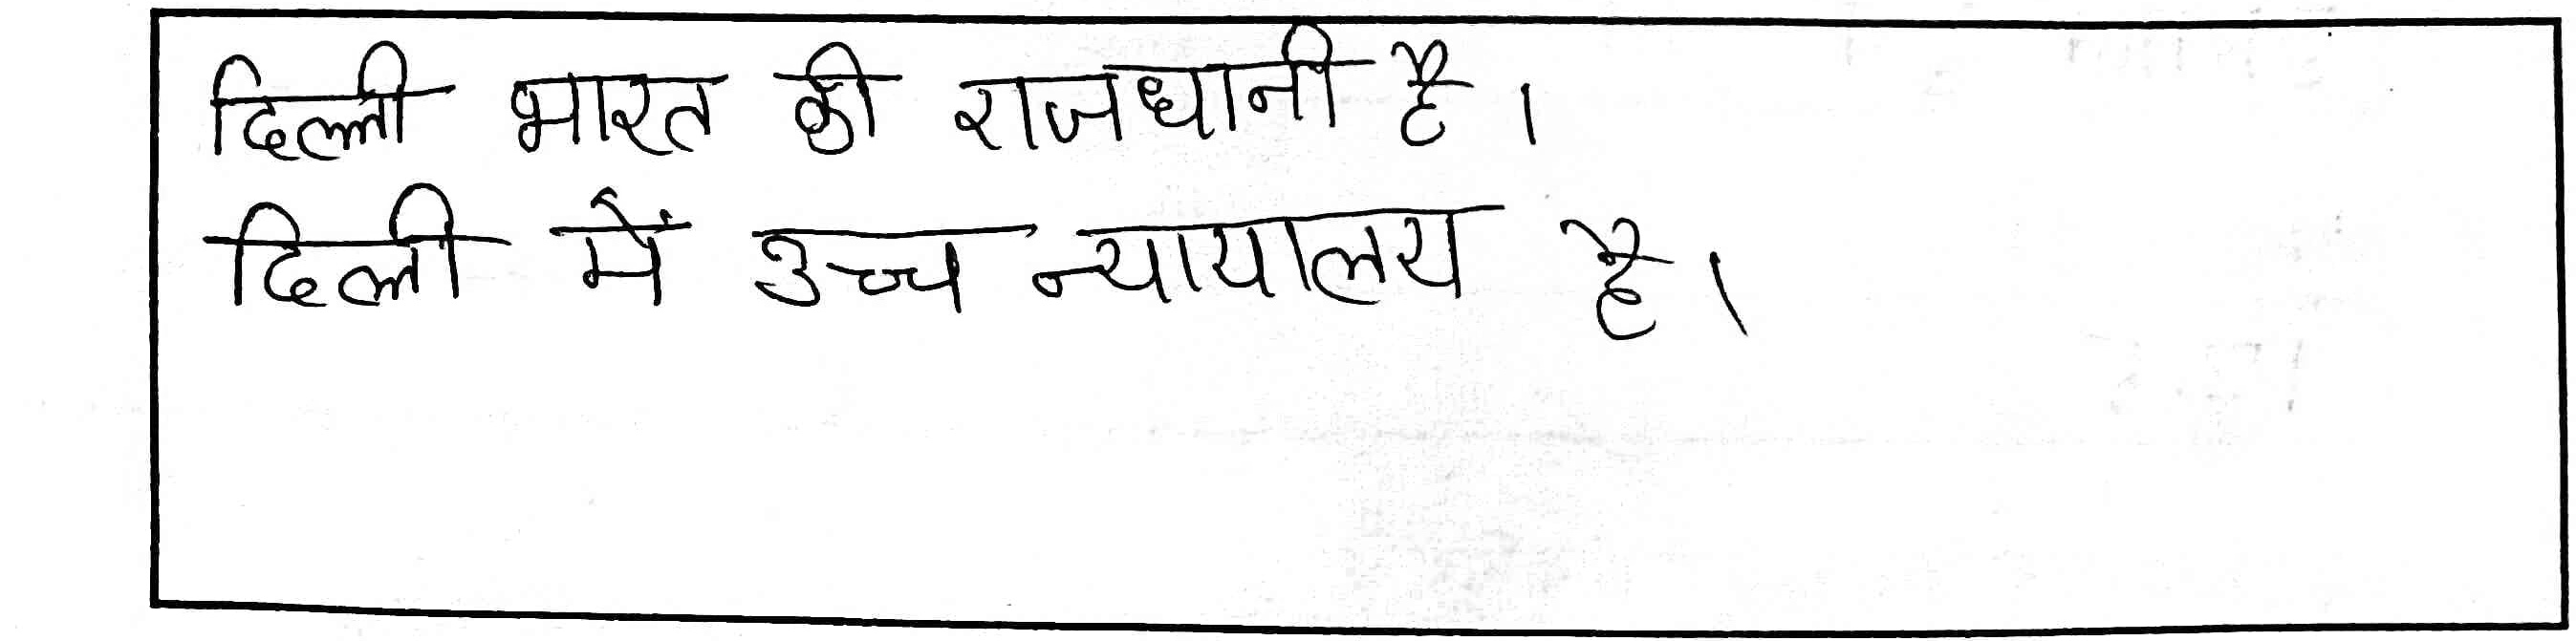 दिल्ली भारत की राजधानी है।
दिल्ली में उच्च न्यायालय है।